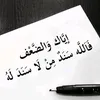 إِيَّاكَ وَالضَّعْف
فَاللَّه سَنَدُ مَنْ لَا سَنَدَ لَهُ